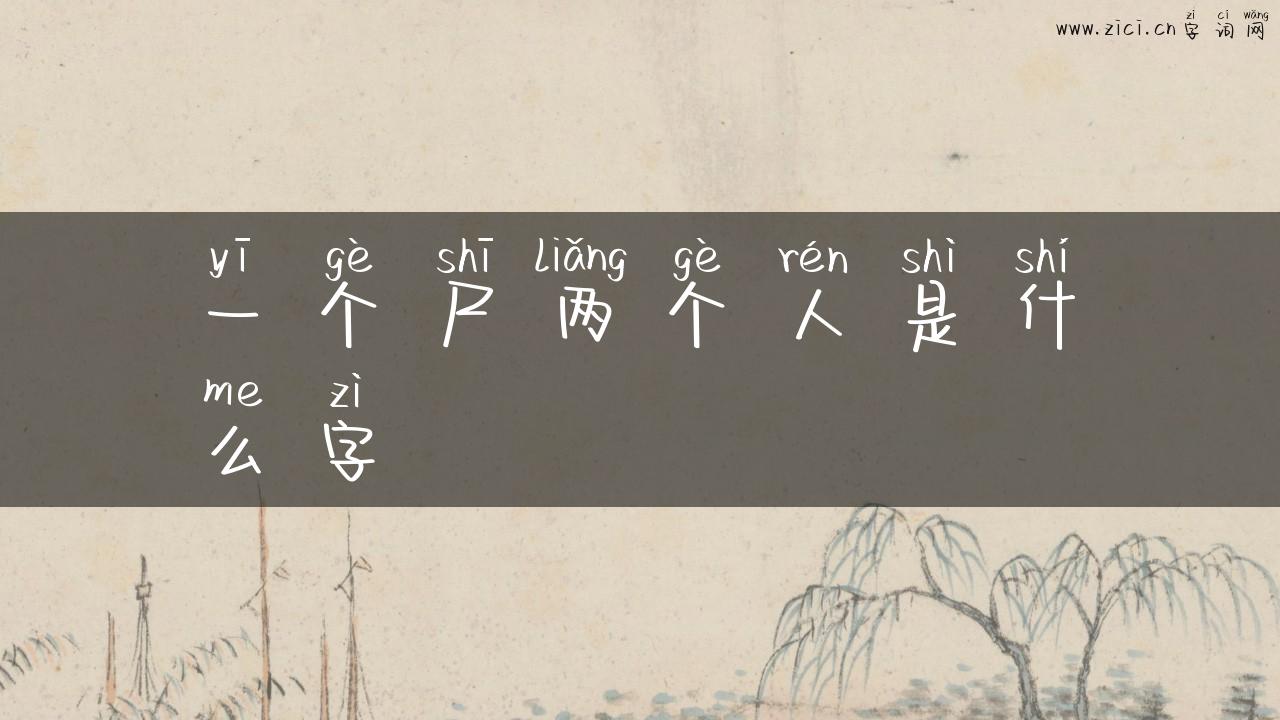 www.zici.cn 字词网
zì cí wǎng
yī gè shī liǎng gè rén shì shí
一个尸两个人是什
me zì
么字